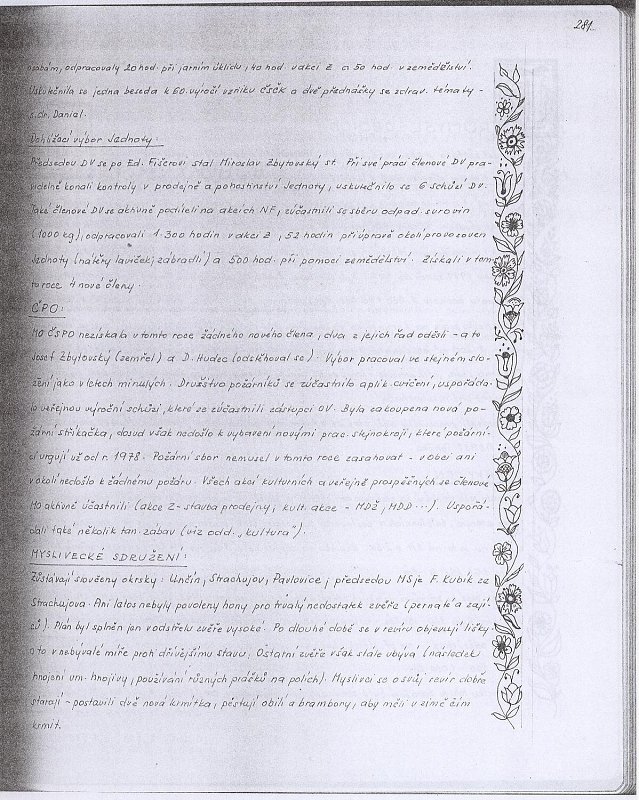 281.
osobám, odpracovaly 20 hod. při jarním úklidu, 40 hod. v akci Z a 50 hod. v zemědělství.
Uskutečnila se jedna beseda k 60. výročí vzniku ČSČK a dvě přednášky se zdrav. tématy -
s. dr. Daniel.
Dohlížecí výbor Jednoty:
Předsedou DV se po Ed. Fišerovi stal Miroslav Zbytovský st. Při své práci členové DV pra-
videlně konali kontroly v prodejně a pohostinství Jednoty, uskutečnilo se 6 schůzí DV.
Také členové DV se aktivně podíleli na akcích NF, zúčastnili se sběru odpad. surovin
(1000 kg), odpracovali 1 300 hodin v akci Z, 52 hodin při úpravě okolí provozoven
Jednoty (nátěry laviček, zábradlí) a 500 hod. při pomoci zemědělství. Získali v tom-
to roce 4 nové členy.
ČPO:
MO ČSPO nezískala v tomto roce žádného nového člena, dva z jejich řad odešli - a to
Josef Zbytovský (zemřel) a D. Hudec (odstěhoval se). Výbor pracoval ve stejném slo-
žení jako v letech minulých. Družstvo požárníků se zúčastnilo aplik. cvičení, uspořáda-
lo veřejnou výroční schůzi, které se zúčastnili zástupci OV. Byla zakoupena nová po-
žární stříkačka, dosud však nedošlo k vybavení novými prac. stejnokroji, které požární-
ci urgují už od r. 1978. Požární sbor nemusel v tomto roce zasahovat - v obci ani
v okolí nedošlo k žádnému požáru. Všech akcí kulturních a veřejně prospěšných se členové
MO aktivně účastnili (akce Z - stavba prodejny, kult. akce - MDŽ, MDD ...). Uspořá-
dali také několik tan. zábav (viz odd. „kultura").
MYSLIVECKÉ SDRUŽENÍ:
Zůstávají sloučeny okrsky: Unčín, Strachujov, Pavlovice, předsedou MS je F. Kubík ze
Strachujova. Ani letos nebyly povoleny hony pro trvalý nedostatek zvěře (pernaté a zají-
ců). Plán byl splněn jen v odstřelu zvěře vysoké. Po dlouhé době se v revíru objevují lišky,
a to v nebývalé míře proti dřívějšímu stavu. Ostatní zvěře však stále ubývá (následek
hnojení um. hnojivy, používání různých prášků na polích). Myslivci se o svůj revír dobře
starají - postavili dvě nová krmítka, pěstují obilí a brambory, aby měli v zimě čím
krmit.